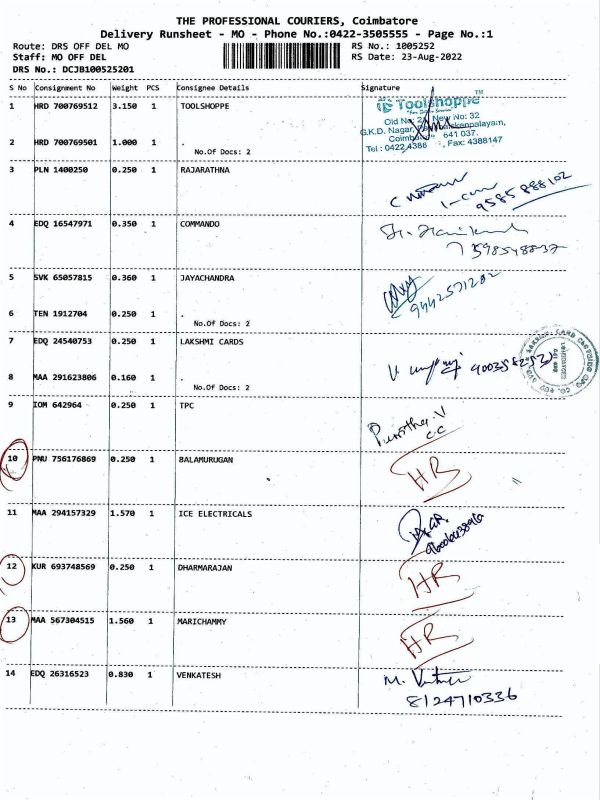 THE PROFESSIONAL COURIERS, Coimbatore
Delivery Runsheet - MO - Phone No.:0422-3505555 - Page No.:1
Route: DRS OFF DEL MO RS No.: 1005252
Staff: MO OFF DEL RS Date: 23-Aug-2022
DRS No.: DCJB100525201
S No Consignment No Weight PCS Consignee Details Signature
1 HRD 700769512 3.150 1 TOOLSHOPPE
Toolshoppe
Old No: New No: 32
G.K.D. Nagar,
641 037.
Tel : 0422 4388 Fax: 4388147
2 HRD 700769501 1.000 1 .
No.Of Docs: 2
3 PLN 1400250 0.250 1 RAJARATHNA
9585888102
4 EDQ 16547971 0.350 1 COMMANDO
5 SVK 65057815 0.360 1 JAYACHANDRA
9442571202
6 TEN 1912704 0.250 1 .
No.Of Docs: 2
7 EDQ 24540753 0.250 1 LAKSHMI CARDS
8 MAA 291623806 0.160 1 .
No.Of Docs: 2
9 IOM 642964 0.250 1 TPC
C.C
10 PNU 756176869 0.250 1 BALAMURUGAN
HR
11 MAA 294157329 1.570 1 ICE ELECTRICALS
12 KUR 693748569 0.250 1 DHARMARAJAN
HR
13 MAA 567304515 1.560 1 MARICHAMMY
HR
14 EDQ 26316523 0.830 1 VENKATESH
M.
8124710336